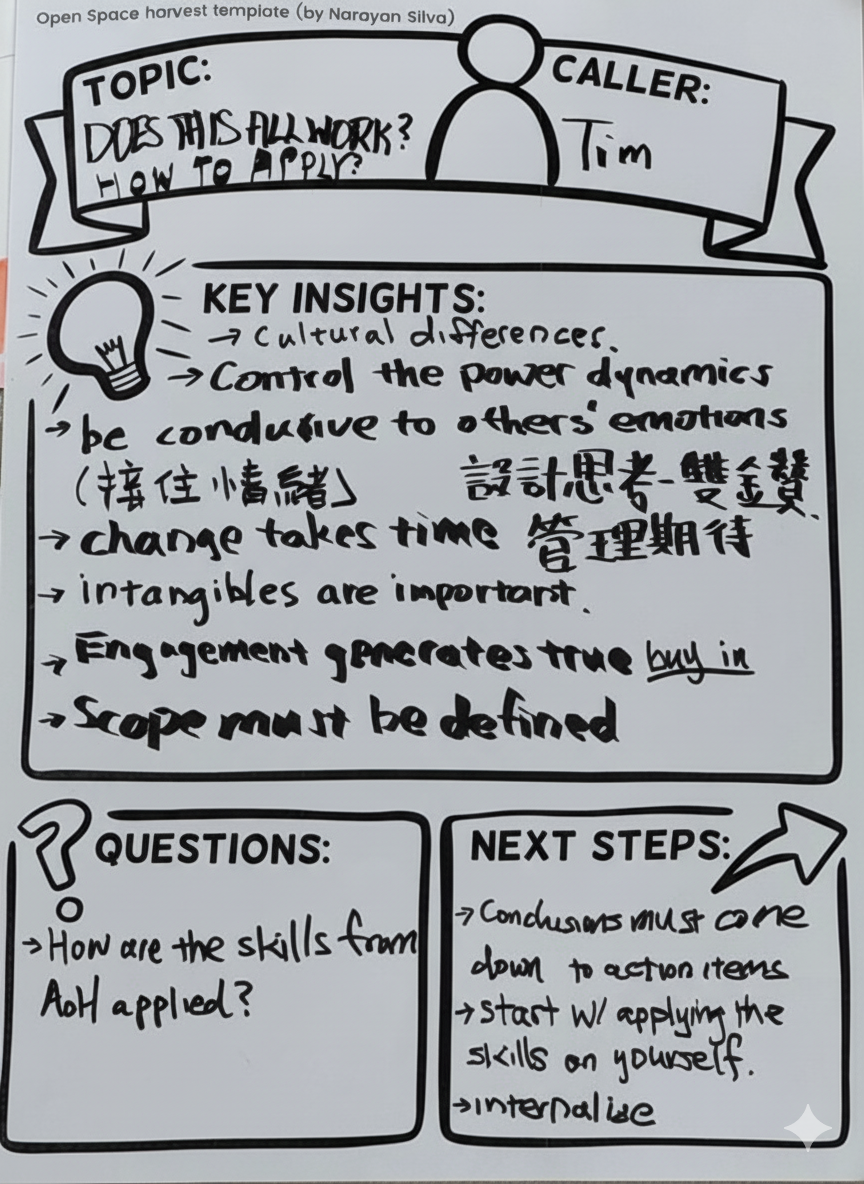 Open Space harvest template (by Narayan Silva)
TOPIC:
DOES THIS ALL WORK?
HOW TO APPLY?
CALLER:
Tim
KEY INSIGHTS:
→ Cultural differences.
→ Control the power dynamics
→ be condusive to others' emotions
(接住情緒) 設計思考-雙金鑽
→ change takes time 管理期待
→ intangibles are important.
→ Engagement generates true buy in
→ Scope must be defined
QUESTIONS:
→ How are the skills from
AoH applied?
NEXT STEPS:
→ Conclusions must come
down to action items
→ start w/ applying the
skills on yourself.
→ internalise